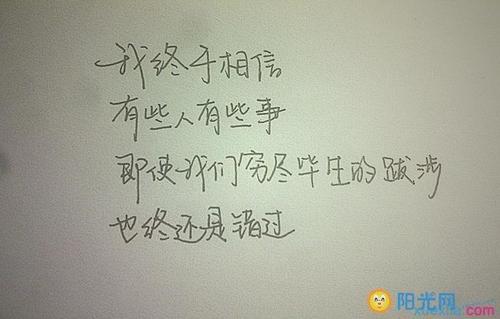 我终于相信
有些人有些事
即使我们穷尽毕生的跋涉
也终还是错过
阳光网
xuexila.com